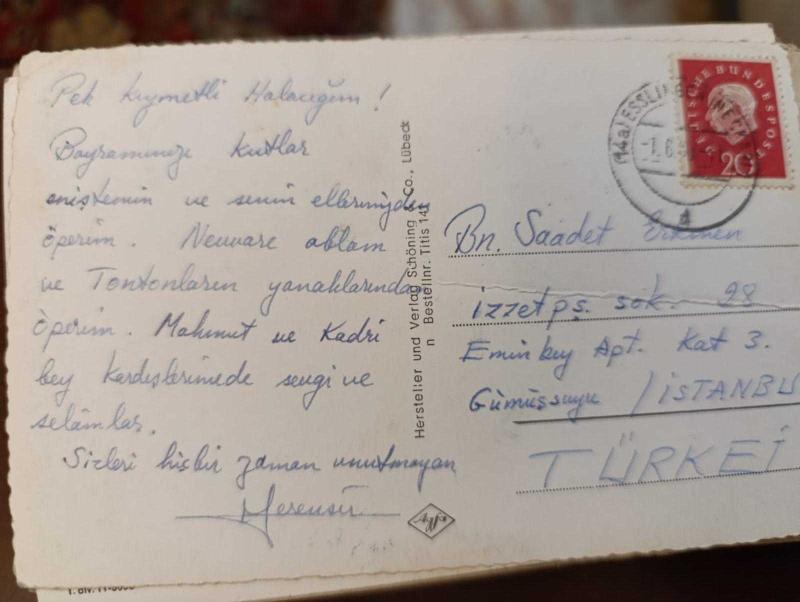 Pek kıymetli Halacığım!
Bayramınızı kutlar
eniştemin ve senin ellerinizden
öperim. Nevvare ablam
ve Tontonların yanaklarından
öperim. Mahmut ve Kadri
bey kardeşlerimede sevgi ve
selâmlar.
Sizleri hiçbir zaman unutmayan
Hersteller und Verlag Schöning & Co., Lübeck
Bestellnr. Titis 141
Agfa
(14a) ESSLINGEN (NECKAR)
DEUTSCHE BUNDESPOST
20
Bn. Saadet Erkmen
izzetpş. sok. 28
Emin bey Apt. Kat 3.
Gümüşsuyu / iSTANBU
TÜRKEİ